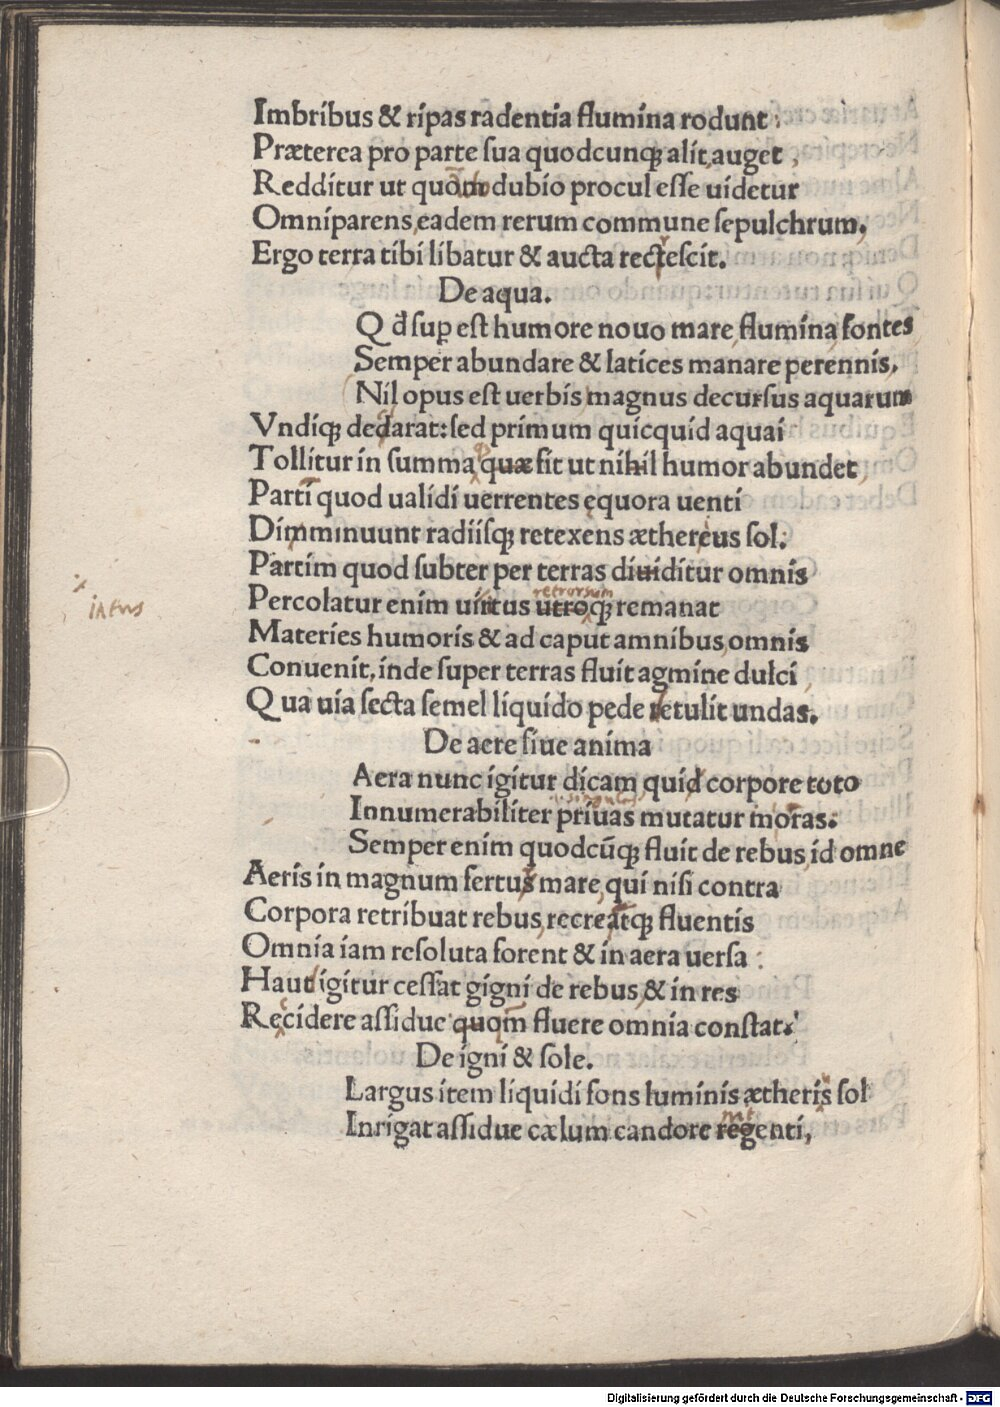 Imbribus & ripas radentia flumina rodunt:
Præterea pro parte sua quodcunq; alit, auget,
Redditur ut quom dubio procul esse, uidetur
Omniparens, eadem rerum commune sepulchrum,
Ergo terra tibi libatur & aucta rectescit.
De aqua.
Q đ sup est humore nouo mare, flumina, fontes
Semper abundare & latices manare perennis,
Nil opus est uerbis, magnus decursus aquarum
Vndiq; dedarat: sed primum quicquid aquai
Tollitur in summa quæ fit ut nihil humor abundet,
Parti quod ualidi uerrentes ęquora uenti
Dimminuunt radiisq; retexens æthereus sol:
Partim quod subter per terras diuiditur omnis
retrorsum
intus
Percolatur enim uirtus utroq; remanat
Materies humoris & ad caput amnibus, omnis
Conuenit, inde super terras fluit agmine dulci,
Qua uia secta semel liquido pede retulit undas.
De aere siue anima
Aera nunc igitur dicam quid corpore toto
singulas
Innumerabiliter priuas mutatur moras.
Semper enim quodcūq; fluit de rebus, id omne
Aeris in magnum fertus mare, qui nisi contra
Corpora retribuat rebus, recreatq; fluentis
Omnia iam resoluta forent & in aera uersa:
Haud igitur cessat gigni de rebus, & in res
Recidere assidue quom fluere omnia constat.
De igni & sole.
Largus item liquidi fons luminis ætheris sol
Inrigat assidue cælum candore regenti,
Digitalisierung gefördert durch die Deutsche Forschungsgemeinschaft - DFG